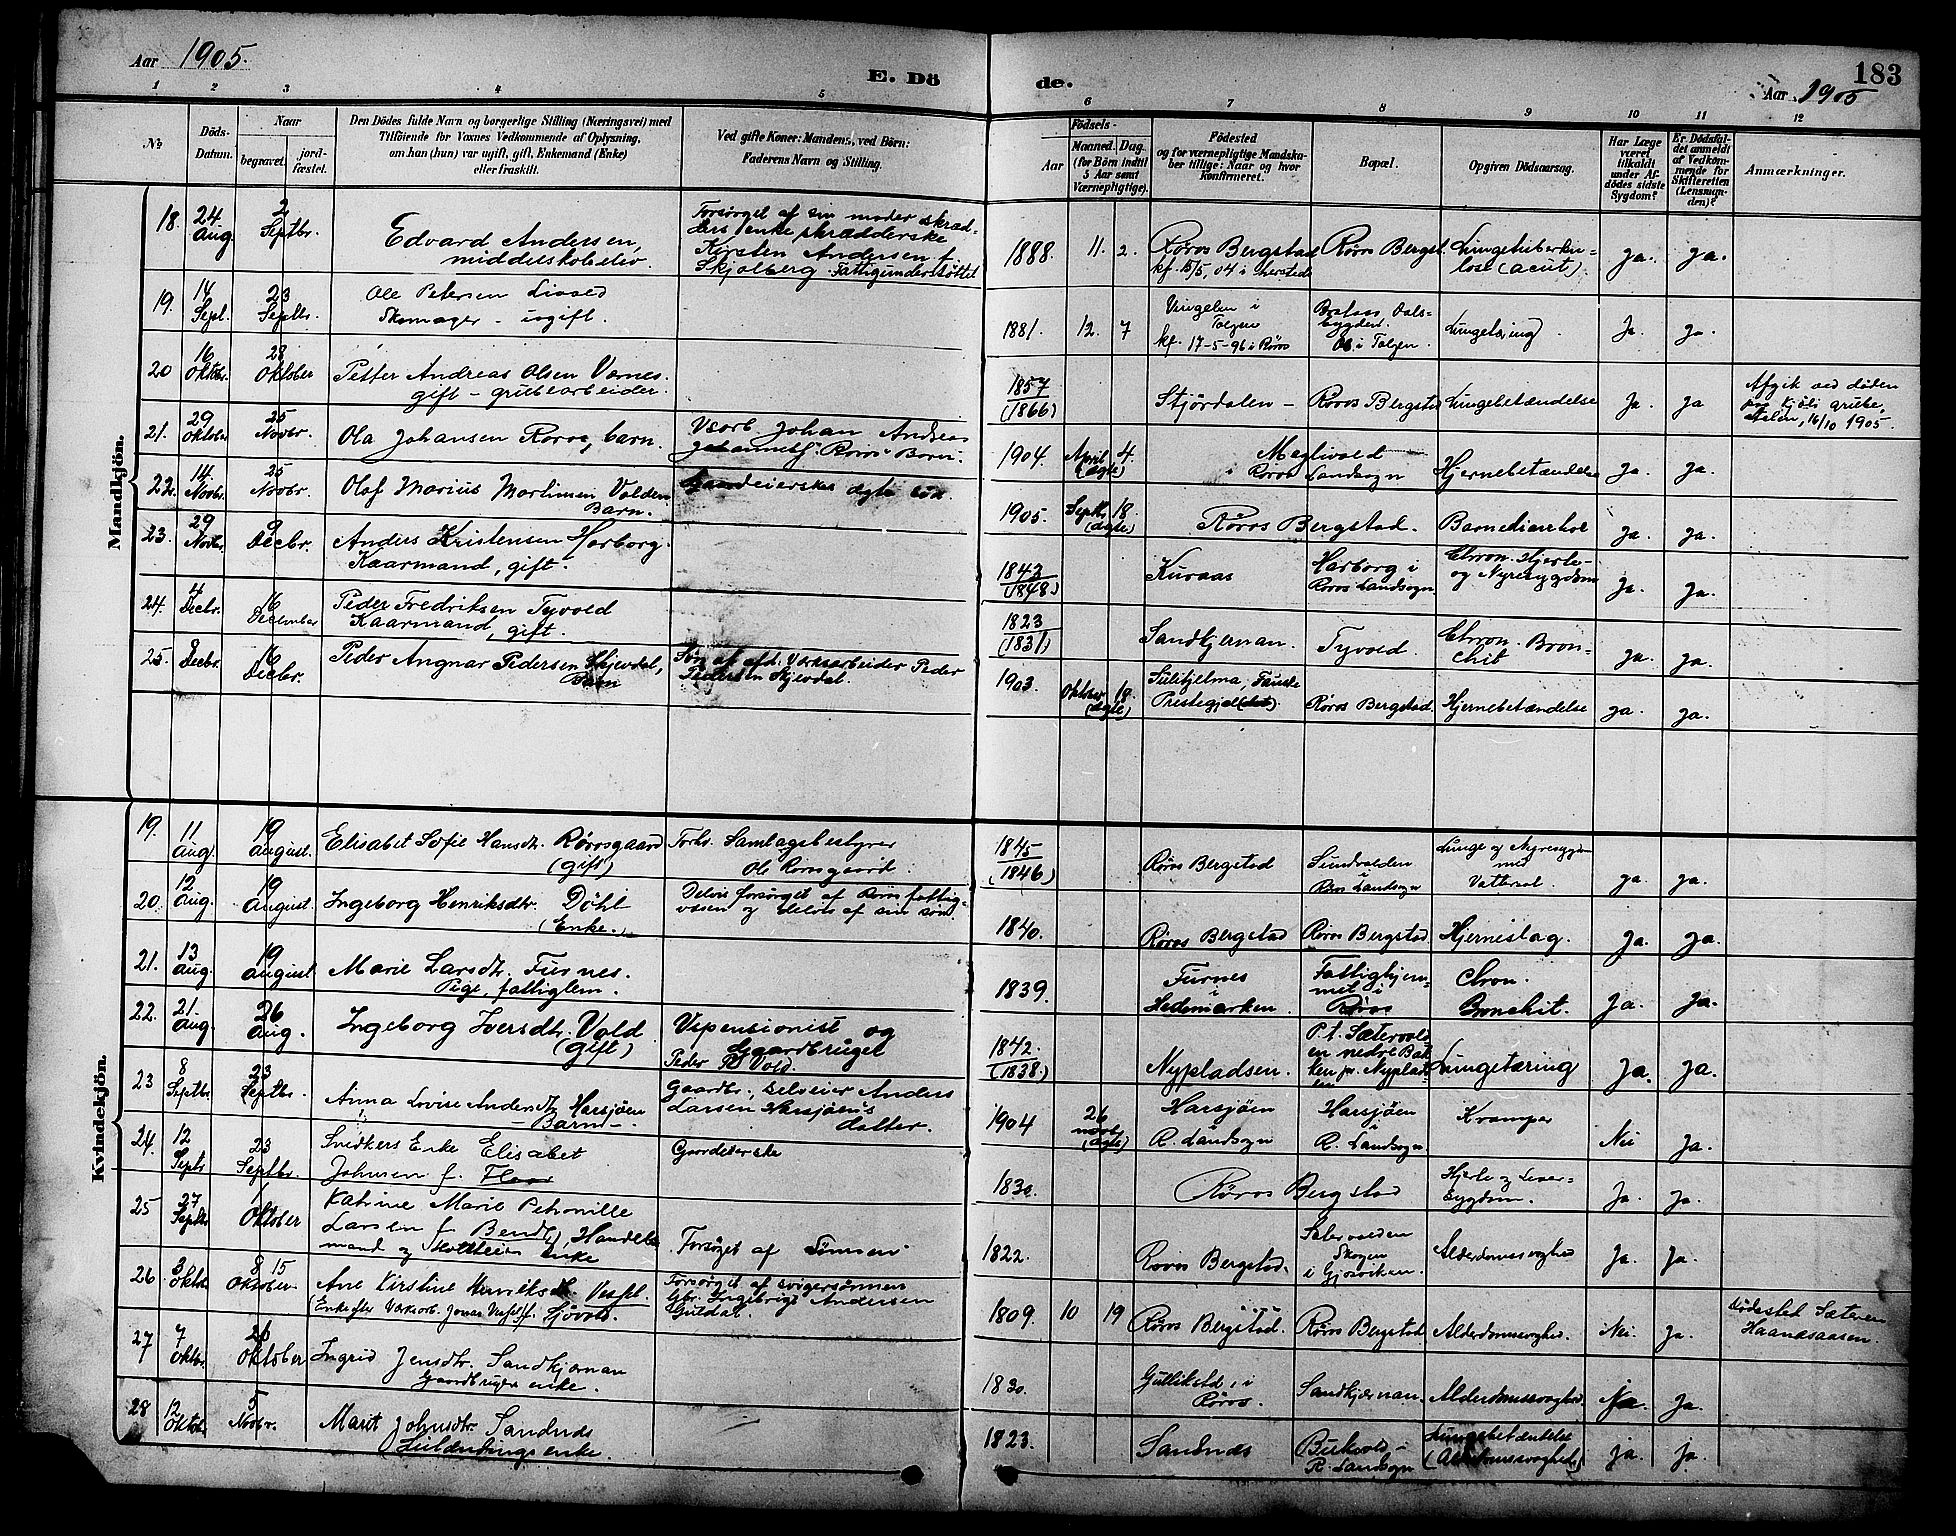 Aar 1905.
E. Dö
de.
Aar 1905
183
1 2 3 4 5 6 7 8 9 10 11 12
№
Döds-
Datum.
Naar
begravet.
jord-
fæstet.
Den Dödes fulde Navn og borgerlige Stilling (Næringsvei) med
Tilföiende for Voxnes Vedkommende af Oplysning,
om han (hun) var ugift, gift, Enkemand (Enke)
eller fraskilt.
Ved gifte Koner: Mandens, ved Börn:
Faderens Navn og Stilling.
Födsels-
Aar
Maaned.
Dag.
(for Börn indtil
5 Aar samt
Værnepligtige).
Födested
og for værnepligtige Mandska-
ber tillige: Naar og hvor
konfirmeret.
Bopæl.
Opgiven Dödsaarsag.
Har Læge
været
tilkaldt
under Af-
dödes sidste
Sygdom?
Er Dödsfal-
det anmeldt
af Vedkom-
mende for
Skifteretten
(Lensman-
den)?
Anmærkninger.
Mandkjön.
18. 24 Aug. 2 Septbr. Edvard Andersen,
middelskoleelev.
Forsørget af sin moder skræd-
ders enke skrædderske
Kirsten Andersen f.
Skjølberg. Fattigunderstøttet
1888. 11. 2. Røros Bergstad
kf. 15/5, 04 i
Røros Bergst. Lungetuberku-
lose (acut). ja. ja.
19. 14 Sept. 23 Septbr. Ole Petersen
Skomager - ugift.
1881. 12. 7 Vingelen i
Tolgen
kf. 17-5-96 i Røros
Dals-
bygden.
i Tolgen. Lungetæring Ja ja
20 16 Oktbr. 28 Oktober Petter Andreas Olsen Vornes.
gift - grubearbeider.
1857
(1866) Stjørdalen - Røros Bergstad Lungebetændelse Ja. Ja
Afgik ved døden
paa Kjøli grube,
Aalen, 16/10 1905.
21. 29 Oktober 25 Novbr. Ola Johansen Røros, barn.
Johan Andreas
Røros' Barn.
1904. April 4.
(ægte)
i Røros Landsogn Hjernebetændelse Ja. Ja.
22. 14 Novbr. 25 Novbr. Olaf Marius Martinsen Volden
Barn.
Gaardeierskes ægte søn.
1905. Septb. 18.
(ægte) Røros Bergstad. Barnediarrhoe Ja. Ja.
23. 29 Novbr. 9 Decbr. Anders Kristensen Harborg.
Kaarmand, gift.
1842
(1848) Kuraas Harborg i
Røros Landsogn Chron. Hjerte-
og Nyresygdom Ja. Ja.
24. 4 Decbr. 16 December Peder Fredriksen Tyvold
Kaarmand, gift.
1823
(1831) Sandkjernan. Tyvold. Chron. Bron-
chit Ja. Ja.
25. Decbr. 16 Decbr. Peder Angnar Pedersen Skjevdal,
Barn
Søn af afd. Verksarbeider Peder
Pedersen Skjevdal.
1903. Oktober 19.
(ægte) Sulitjelma, Fauske
Prestegjeld Røros Bergstad. Hjernebetændelse ja. ja.
Kvindekjön.
19. 11 Aug. 19 August. Elisabet Sofie Hansdtr. Rørosgaard
(gift)
Forhv. Samlagsbestyrer
Ole Rørosgaard.
1845
(1846) Røros Bergstad Sundvolden
i
Røros Landsogn Lunge og Nyresygdom
med
Vattersot. ja. ja.
20. 12 Aug. 19 August. Ingeborg Henriksdtr. Döhl
(Enke.)
Delvis forsørget af Røros fattig-
væsen og delvis af sin søn.
1840. Røros Bergstad Røros Bergstad Hjerneslag. Ja. Ja.
21. 13 Aug. 19 August Marie Larsdtr. Furnes.
Pige, fattiglem.
1839. Furnes
i
Hedemarken Fattighjem-
met i
Røros Chron.
Bronchit. Ja. Ja.
22. 21. Aug. 26 Aug. Ingeborg Iversdtr. Vold
(gift)
Vspensionist og
Gaardbruger
Peder P. Vold.
1842.
(1838.) Nypladsen. P.t. Sætervold-
en nedre Bak-
ken pr. Nyplads-
en Lungetæring Ja. Ja.
23 8 Septbr. 23 Septbr. Anna Lovise Andersdtr. Harsjøen
- Barn -.
Gaardbr., selveier Anders
Larsen Harsjøen's
datter.
1904 26 novb.
(ægte) Harsjøen
R. Landsogn Harsjøen
R. Landsogn Krampe Nei Ja.
24. 12 Septr 23 Septbr. Snidkers Enke Elisabet
Johnsen f. Floor
Gaardeierske
1830. Røros Bergstad Hjerte og Lever-
sygdom. Ja. Ja.
25 27 Septbr 1 Oktober Katrine Marie Petronille
Larsen f. Bendt, Handels-
mand og enke
Forsørget af Sønnen
1822. Røros Bergstad. Sætervolden
Skogen
i Gjøsviken. Alderdomssvaghed Ja. Ja.
26 3 Oktbr. 8 15 Oktober. Ane Kirstine Henriksdtr. Vessel.
(Enke efter Verksarb. Jonas Vessel) f. Hjövold.
Forsørget af svigersønnen
Gbr. Ingebrigt Andersen
Guldal.
1809. 10 19 Røros Bergstad. Røros Bergstad Alderdomssvaghed. Nei. Ja.
Dødsstet Sæteren
Haanesaasen.
27 7 Oktbr. 26 Oktober Ingrid Jensdtr. Sandkjernan
Gaardbrugers enke.
1830 Gullikstad, i
Røros. Sandkjernan. Alderdomssvaghed. Ja. Ja.
28 12 Oktbr. 5 Novbr. Marit Johnsdtr. Sandnes
enke.
1823. Sandnes
R. Landsogn Lungebetændelse
(Alderdomssvaghed) ja. ja.